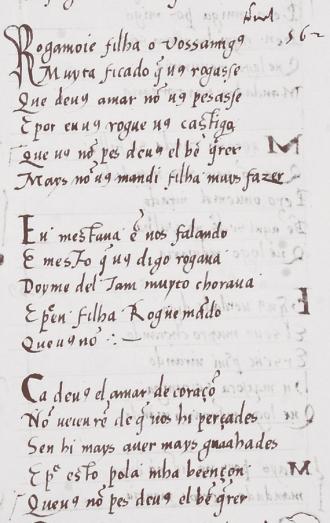 562
Rogamoie filha o vossamigꝯ
Muyta ficado q̃ uꝯ rogasse
Que deuꝯ amar nõ uꝯ pesasse
E por en uꝯ rogue uꝯ castigo
Que uꝯ nõ pes deuꝯ el bẽ q̃rer
Mays nõ uꝯ mandi filha mays fazer
M
Eu mestaua ẽ uos falando
E mesto q̃ uꝯ digo rogaua
Doyme del Tam muyto choraua
E pẽ en filha Rogue mãdo
Que uꝯ nõ
Ca deuꝯ el amar de coraçõ
Nõ ueeu re de q̃ uos hi perçades
Sen hi mays auer mays guaahades
E pẽ esto pola mha beençon
M
Que uꝯ nõ pes deuꝯ el bẽ q̃rer